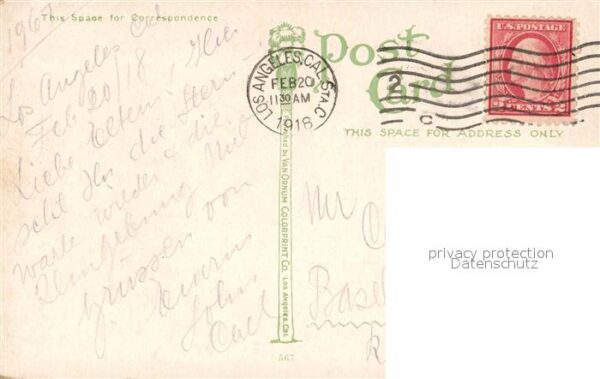 This Space for Correspondence
Los Angeles Cal
Feb 20/18
Liebe Eltern! Hier
seht Ihr die Stern
warte wieder & die
Umgebung. Mit
Grüssen von
Eurem
Sohn
Carl
Published by VAN ORNUM COLORPRINT CO. LOS ANGELES, CAL.
567
Post
Card
THIS SPACE FOR ADDRESS ONLY
LOS ANGELES, CAL. STA. C
FEB 20
11 30 AM
1918
2
C
U.S. POSTAGE
2 CENTS 2
Mr
Basel
privacy protection
Datenschutz